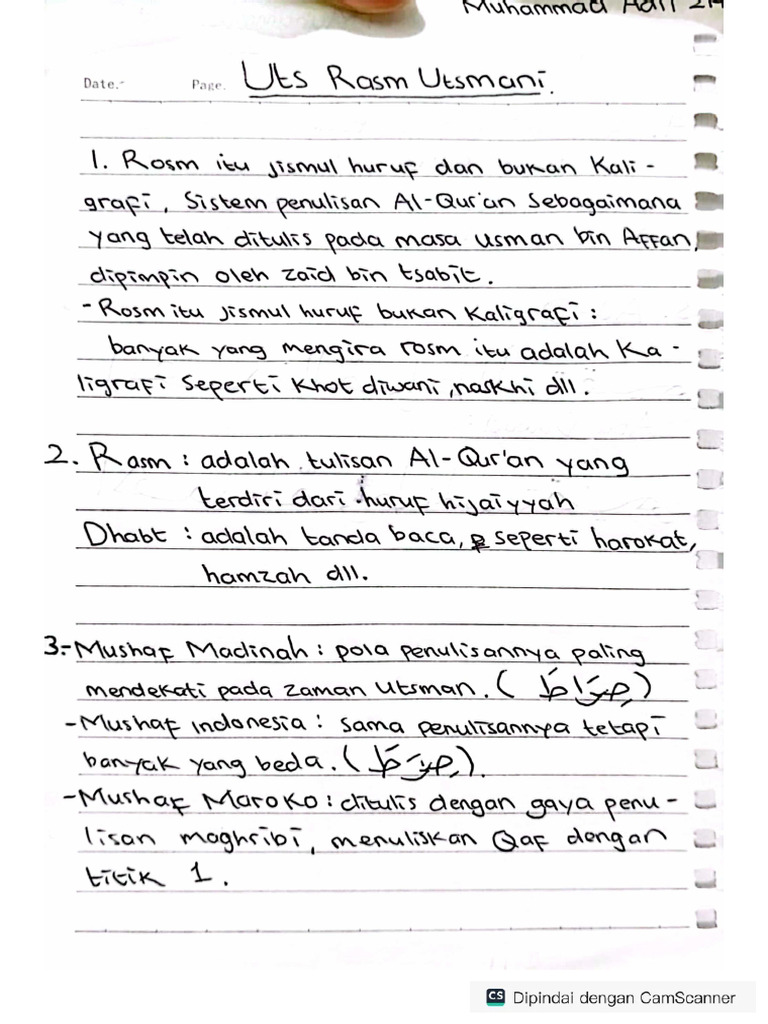 Muhammad Adil
Date.- Page. Uts Rasm Utsmani.
1. Rosm itu jismul huruf dan bukan Kali-
grafi, Sistem penulisan Al-Qur'an Sebagaimana
yang telah ditulis pada masa usman bin Affan,
dipimpin oleh zaid bin tsabit.
- Rosm itu jismul huruf bukan Kaligrafi :
banyak yang mengira rosm itu adalah Ka-
ligrafi Seperti Khot diwani, naskhi dll.
2. Rasm : adalah tulisan Al-Qur'an yang
terdiri dari huruf hijaiyyah
Dhabt : adalah tanda baca, seperti harokat,
hamzah dll.
3.- Mushaf Madinah : pola penulisannya paling
mendekati pada zaman Utsman. (صِرَاطَ)
- Mushaf Indonesia : Sama penulisannya tetapi
banyak yang beda. ( ).
- Mushaf Maroko : ditulis dengan gaya penu-
lisan maghribi, menuliskan Qaf dengan
titik 1.
CS Dipindai dengan CamScanner